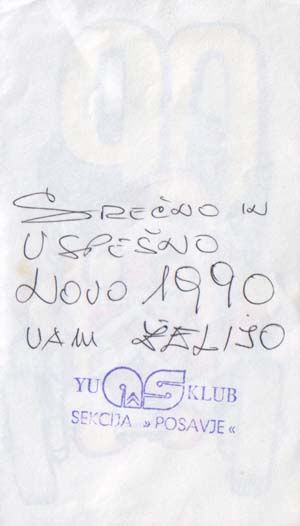 SREČNO IN
USPEŠNO
NOVO 1990
VAM ŽELIJO
YU QS KLUB
SEKCIJA »POSAVJE«